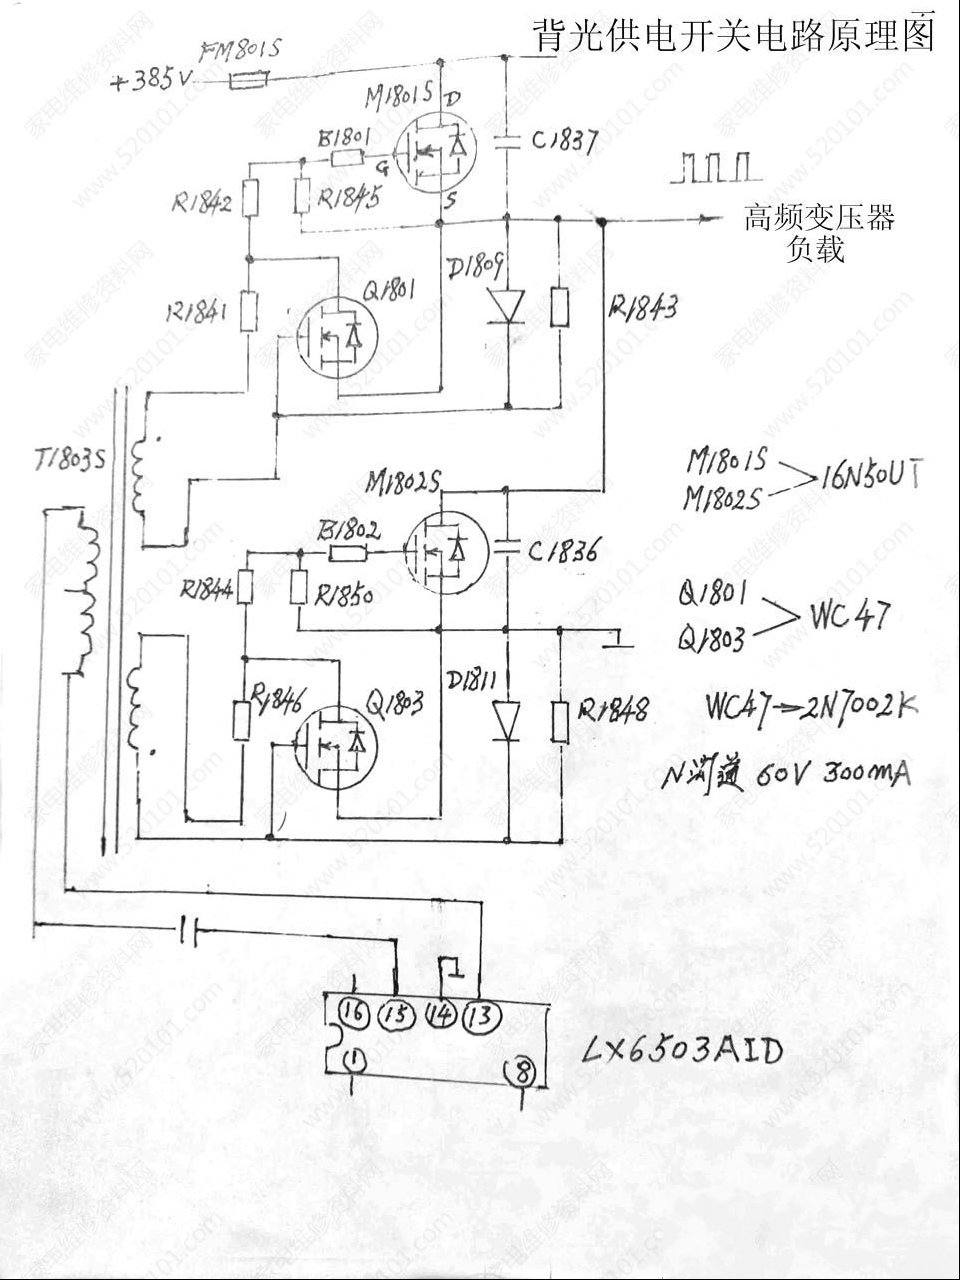 背光供电开关电路原理图
FM801S
+385V
M1801S
D
B1801
G
C1837
R1842
R1845
S
高频变压器
负载
D1809
Q1801
R1841
R1843
T1803S
M1802S
M1801S
M1802S
16N50UT
B1802
C1836
R1844
R1850
Q1801
Q1803
WC47
D1811
R1846
Q1803
R1848
WC47→2N7002K
N沟道 60V 300mA
16
15
14
13
LX6503AID
1
8
家电维修资料网
www.520101.com